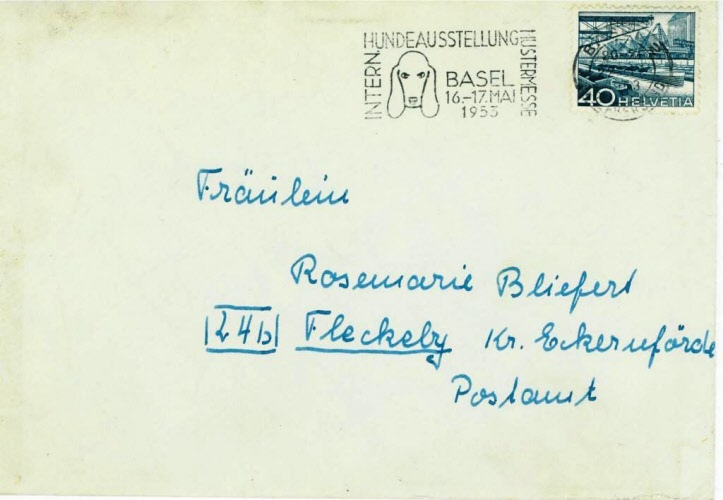 INTERN. HUNDEAUSSTELLUNG MUSTERMESSE
BASEL
16.–17. MAI
1953
40 HELVETIA
Fräulein
Rosemarie Bliefert
24b Fleckeby Kr. Eckernförde
Postamt